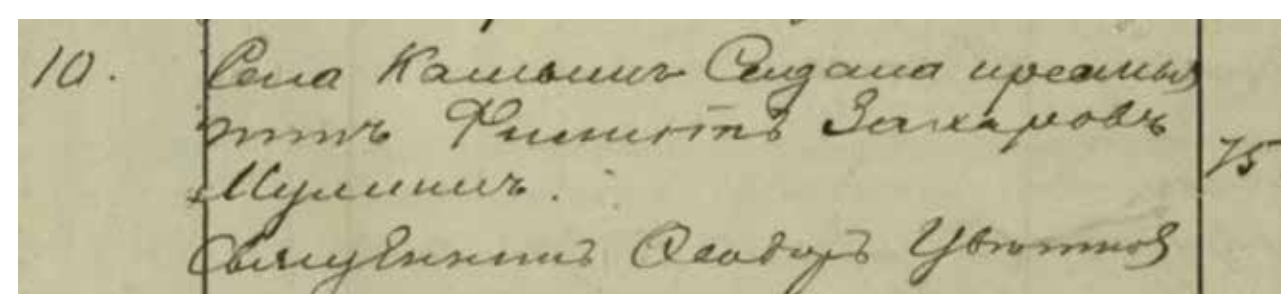 10. Села Камышин Сюдана крестья
нинъ Филиппъ Захаровъ 75
Мулинъ.
Священникъ Ѳеодоръ Цвѣтков